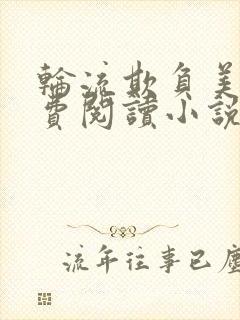 輪流欺負美
費閱讀小說
流年往事已塵